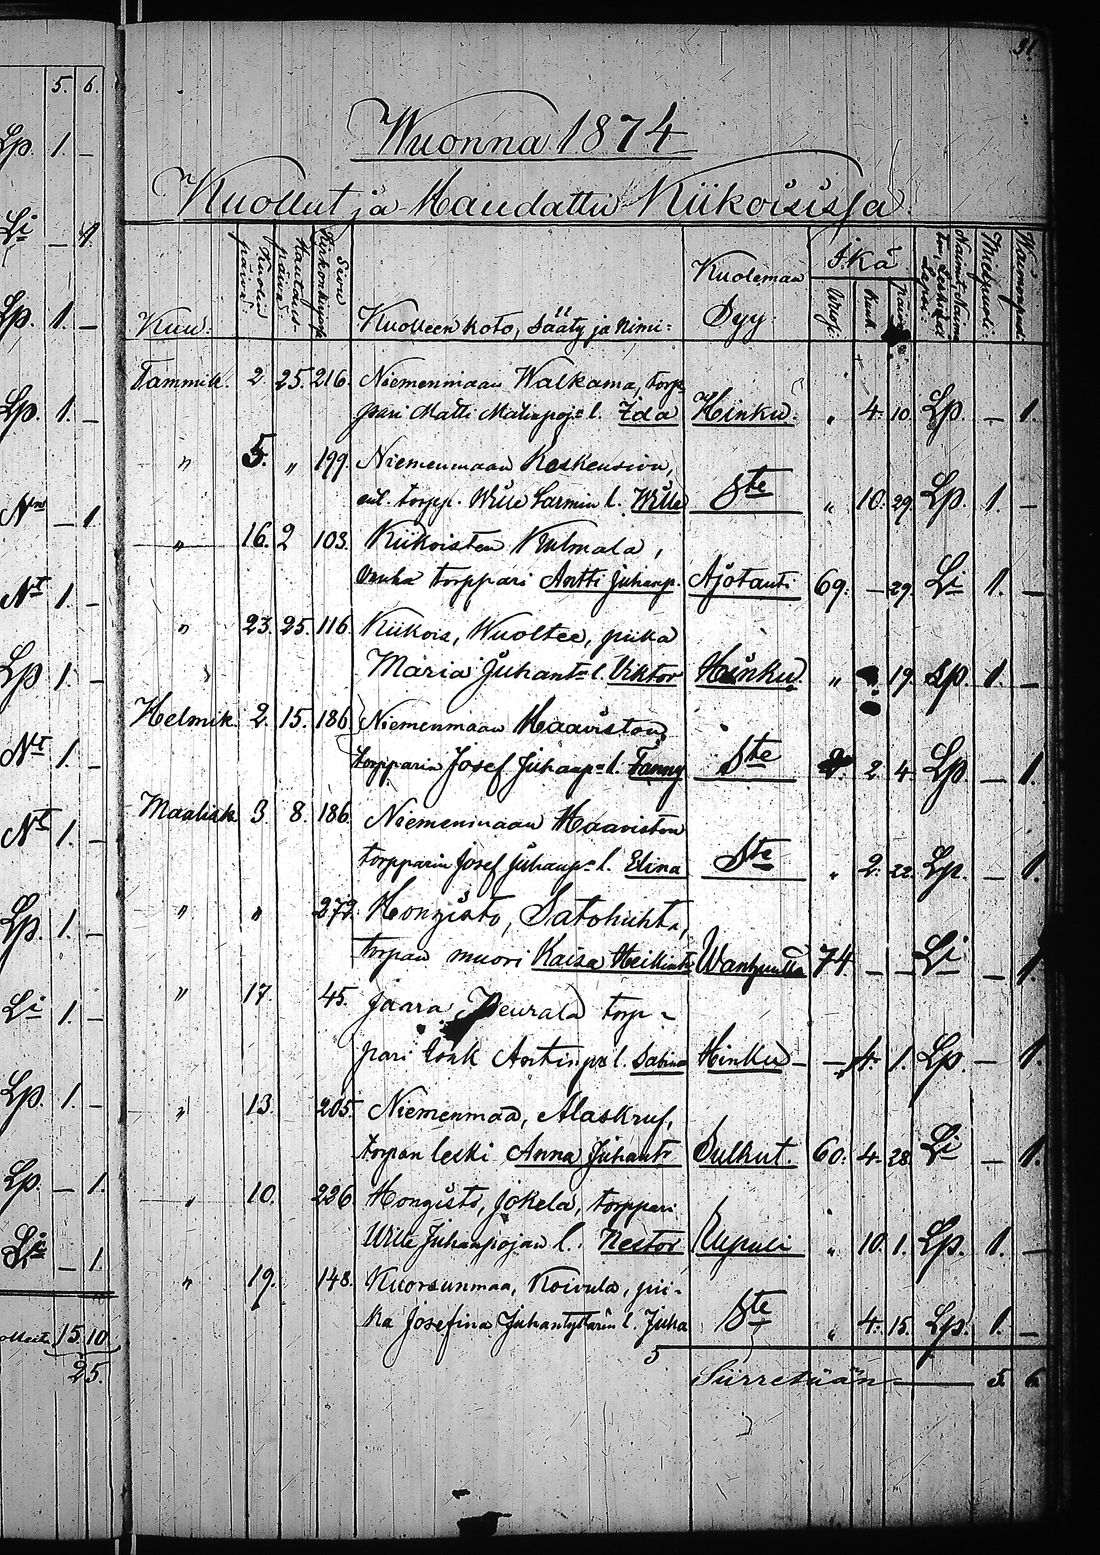 5. 6.
31.
Wuonna 1874
Kuollut ja Haudattu Kiikoisissa
Kuu:
Kuolin päivä.
Hautaus päivä.
Sivu Kirkonkirjassa
Kuolleen koto, sääty ja nimi:
Kuoleman Syy:
Ikä
Vuosi:
Kuuk.
Päiv.
Miespuoli:
Waimopuol:
Tammik. 2. 25. 216. Niemenmaan Walkama, torp-
pari Matti Matinpoj: l. Ida Hinku: „ 4. 10. Lp. — 1.
„ 5. „ 199. Niemenmaan Koskensivu,
ent. torpp. Wille Larmin l. Wille Ste „ 10. 29. Lp. 1. —
„ 16. 2 103. Kiikoisten Kulmala,
vanha torppari Antti Juhanp. Ajotauti 69. — 29. Li 1. —
„ 23. 25. 116. Kiikois, Wuoltee, piika
Maria Juhant: l. Viktor Hinku. „ 19. Lp. 1. —
Helmik. 2. 15. 186. Niemenmaan Haaviston
torpparin Josef Juhanp: l. Fanny Ste 2. 4. Lp. — 1.
Maalisk. 3. 8. 186. Niemenmaan Haaviston
torpparin Josef Juhanp: l. Elina Ste „ 2. 22. Lp. — 1.
„ „ 272. Hongisto, Satohuhta,
torpan muori Kaisa Heikint: Wanhuutta 74 — — Li — 1.
„ 17. 45. Jaara, Peurala torp-
pari Lonk Anttinp: l. Sabina Hinku — — 4. 1. Lp. — 1.
„ 13. 205. Niemenmaa, Alaskruf,
torpan leski Anna Juhant: Sulkut. 60. 4. 28. Li — 1.
„ 10. 226. Hongisto, Jokela, torppari
Wille Juhanpojan l. Nestor Rupuli „ 10. 1. Lp. 1. —
„ 19. 148. Kuorsunmaa, Koivula, pii-
ka Josefina Juhantyttärin l. Juha Ste „ 4. 15. Lp. 1. —
Siirretään — 5. 6.
Lp. 1. —
Li — 1.
Lp. 1. —
Lp. 1. —
— 1.
Nt 1. —
Lp 1. —
Nt 1. —
Nt 1. —
Lp. 1. —
Li 1. —
Lp. 1. —
Lp. — 1.
Li — 1.
15. 10
25.